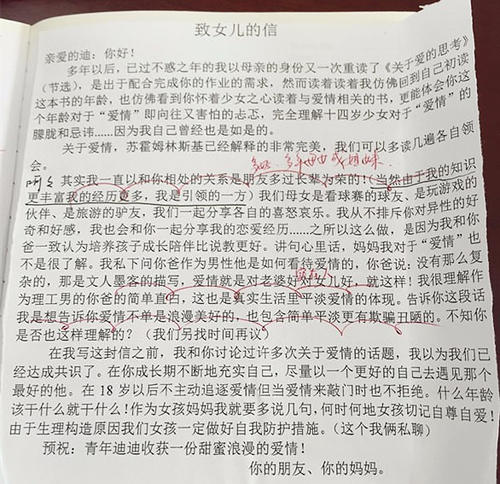 致女儿的信
亲爱的迪：你好！
多年以后，已过不惑之年的我以母亲的身份又一次重读了《关于爱的思考》
（节选），是出于配合完成你的作业的需求，然而读着读着我仿佛回到自己初读
这本书的年龄，也仿佛看到你怀着少女之心读着与爱情相关的书，更能体会你这
个年龄对于“爱情”即向往又害怕的忐忑，完全理解十四岁少女对于“爱情”的
朦胧和忌讳……因为我自己曾经也是如是的。
关于爱情，苏霍姆林斯基已经解释的非常完美，我们可以多读几遍各自领
会。
其实我一直以和你相处的关系是朋友多过长辈为荣的！（当然由于我的知识
更丰富我的经历更多，我是引领的一方）我们母女是看球赛的球友、是玩游戏的
伙伴、是旅游的驴友，我们一起分享各自的喜怒哀乐。我从不排斥你对异性的好
奇和好感，我也会和你一起分享我的恋爱经历……之所以这么做，是因为我和你
爸一致认为培养孩子成长陪伴比说教更好。讲句心里话，妈妈我对于“爱情”也
不是很了解。我私下问你爸作为男性他是如何看待爱情的，你爸说：没有那么复
杂的，那是文人墨客的描写，爱情就是对老婆好对女儿好，就这样！我很理解作
为理工男的你爸的简单直白，这也是真实生活里平淡爱情的体现。告诉你这段话
我是想告诉你爱情不单是浪漫美好的，也包含简单平淡更有欺骗丑陋的。不知你
是否也这样理解的？（我们另找时间再议）
在我写这封信之前，我和你讨论过许多次关于爱情的话题，我以为我们已
经达成共识了。在你成长期不断地充实自己，尽量以一个更好的自己去遇见那个
最好的他。在 18 岁以后不主动追逐爱情但当爱情来敲门时也不拒绝。什么年龄
该干什么就干什么！作为女孩妈妈我就要多说几句，何时何地女孩切记自尊自爱！
由于生理构造原因我们女孩一定做好自我防护措施。（这个我俩私聊）
预祝：青年迪迪收获一份甜蜜浪漫的爱情！
你的朋友、你的妈妈。